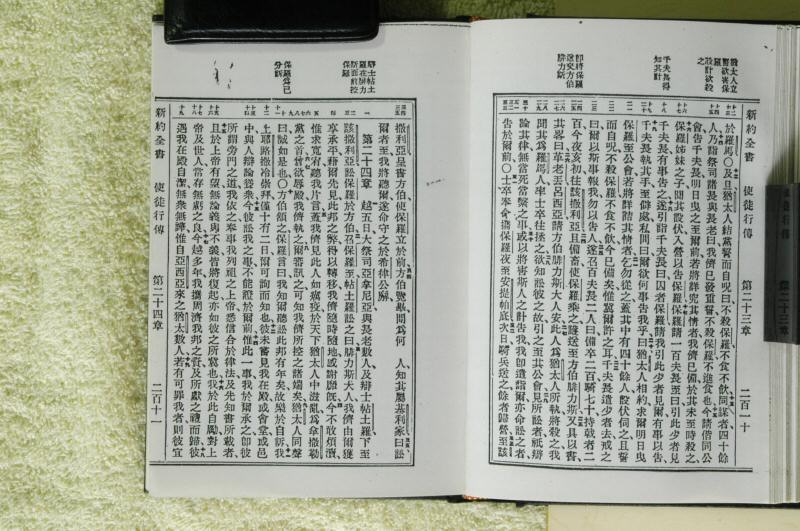 新約全書　使徒行傳　第二十三章　二百一十
猶太人立
於羅馬〇及旦猶太人結黨誓而自呪曰不殺保羅不食不飲同謀者四十餘
人乃詣祭司諸長與長老曰我儕已發重誓不殺保羅不進食也今請偕同公
會告千夫長明日曳之至爾前若將詳究其情者我儕已備於其未至時殺之
保羅姊妹之子聞其設伏入營以告保羅保羅請一百夫長至曰引此少者見
千夫長有事告之遂引詣千夫長曰囚者保羅請我引此少者見爾有事以告
千夫長執其手至僻處私問曰爾欲何事告我乎曰猶太人相約求爾明日曳
保羅至公會若將詳詰其情者乞勿從之蓋其中有四十餘人設伏伺之且誓
而自呪不殺保羅不食不飲今已備矣惟冀爾許之耳千夫長遣少者去戒之
曰爾以斯事報我勿以告人遂召百夫長二人曰備卒二百騎七十持戟者二
百今夜亥初往該撒利亞且備畜使保羅乘之護送至方伯腓力斯又具以書
其畧曰革老丟呂西亞請方伯腓力斯大人安此人爲猶太人所執將殺之我
聞其爲羅馬人率士卒往拯之欲知訟彼之故引之至其公會見所訟者祗辯
論其律無當死當繫之事或以將害斯人之計告我我卽遣詣爾亦命訟之者
告於爾前〇士卒奉命攜保羅夜至安提帕底次日騎兵送之餘者歸營至該
千夫長得
知其計
卽將保羅
送交方伯
腓力斯
新約全書　使徒行傳　第二十四章　二百十一
撒利亞呈書方伯使保羅立於前方伯覽畢問爲何
人知其屬基利家曰訟
爾者至我將聽爾遂命守之於希律公廨
第二十四章
越五日大祭司亞拿尼亞與長老數人及辯士帖土羅下至
該撒利亞訟保羅於方伯召保羅至帖土羅訟之曰腓力斯大人我儕由爾獲
享承平藉爾先見此邦之弊得以轉移我儕隨時隨地感謝願旣今不敢煩瀆
惟求寬宥聽我片言蓋我儕見此人如瘟疫於天下猶太人中滋亂爲拿撒勒
黨之首曾欲辱殿我儕執之爾審訊之可知我儕所控之諸端矣猶太人同聲
曰誠如是也〇方伯頷之保羅言曰我知爾聽訟此邦有年矣故樂於自訴我
上耶路撒冷崇拜僅十有二日爾可詢而知也彼未嘗見我在殿或會堂或邑
中與人辯論聳衆今彼訟我之事不能證於爾前惟此一事我於爾承之卽彼
所謂旁門之道我依之奉事我列祖之上帝悉信合於律法及先知書所載者
且於上帝有望無論義與不義皆將復起亦如彼之所冀也我於此自勵對上
帝及世人當存無虧之良今越多年我攜周濟我邦之資及所獻之禮而歸彼
遇我在殿自潔無衆無譁惟自亞西亞來之猶太數人若有可罪我者則彼宜
辯士帖土
羅在腓力
斯面前控
保羅
保羅爲己
分訴